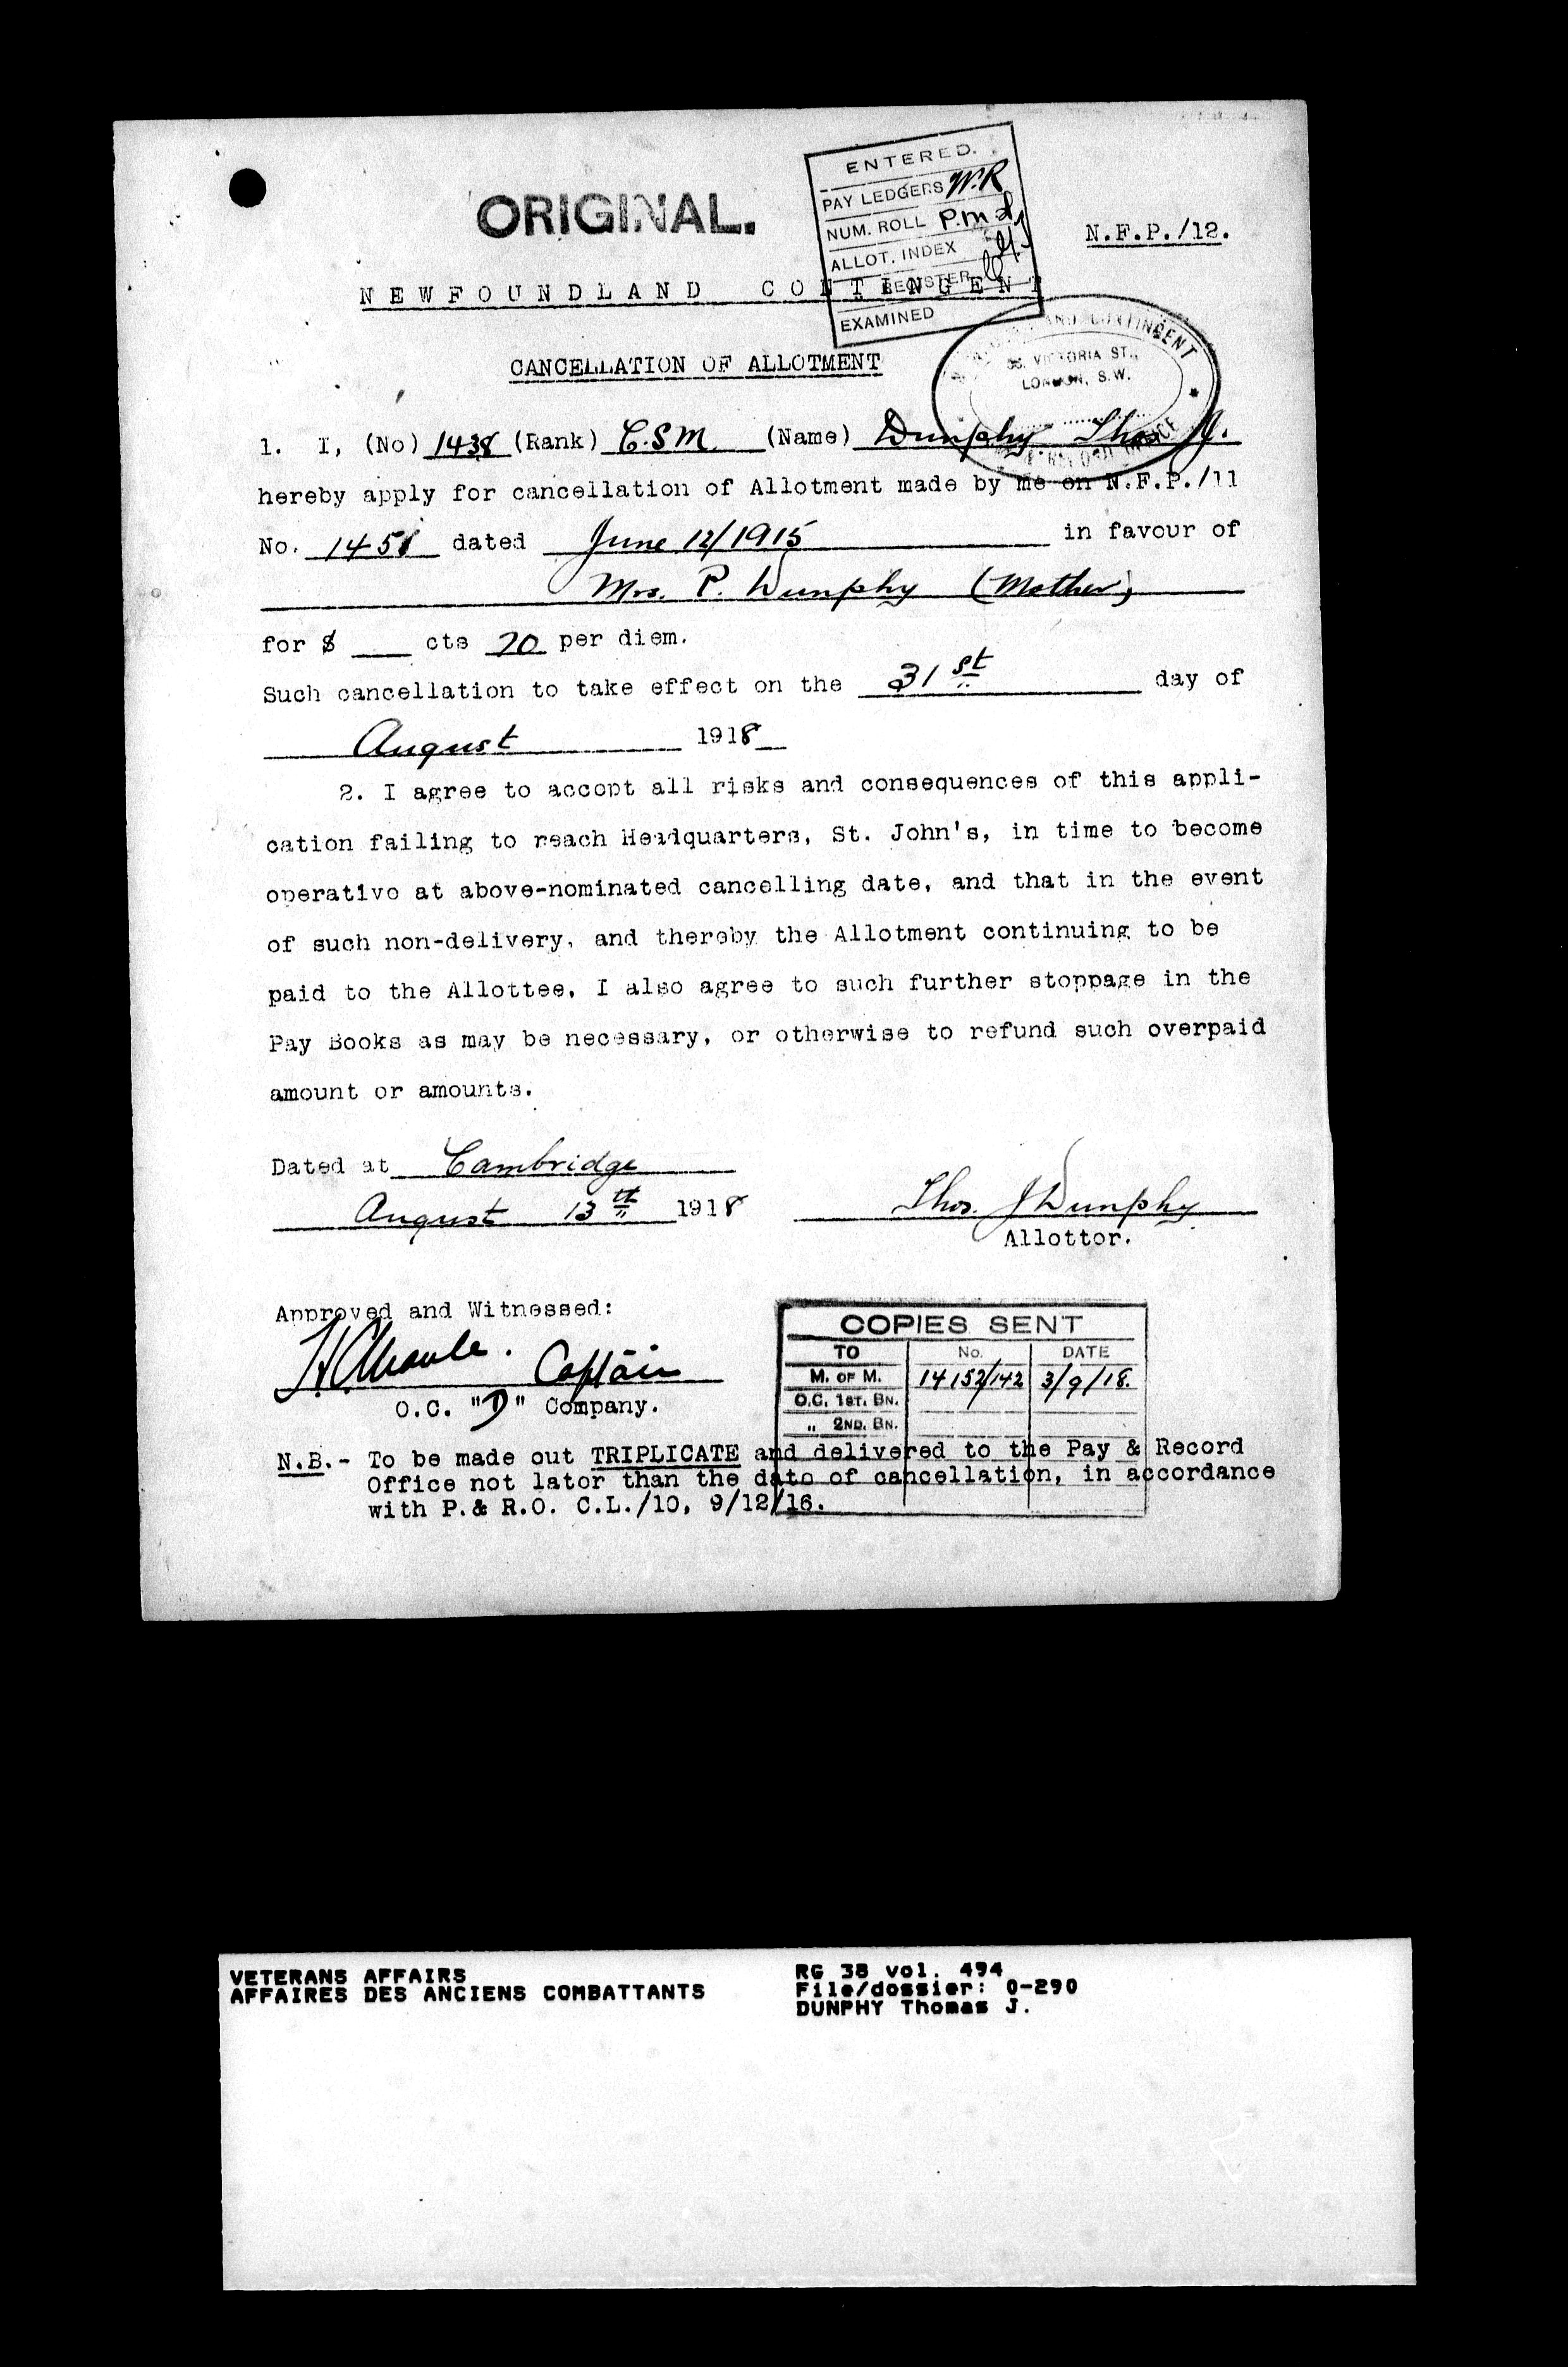 ORIGINAL.
ENTERED.
PAY LEDGERS W.R
NUM. ROLL P.M.
ALLOT. INDEX
REGISTER
EXAMINED
N.F.P./12.
NEWFOUNDLAND CONTINGENT
CONTINGENT
VICTORIA ST.,
LONDON, S.W.
CANCELLATION OF ALLOTMENT
1. I, (No) 1438 (Rank) C.S.M. (Name) Dunphy Thos J.
hereby apply for cancellation of Allotment made by me on N.F.P./11
No. 1458 dated June 12/1915 in favour of
Mrs. P. Dunphy (Mother)
for $ ___ cts 70 per diem.
Such cancellation to take effect on the 31st day of
August 1918
2. I agree to accept all risks and consequences of this appli-
cation failing to reach Headquarters, St. John's, in time to become
operative at above-nominated cancelling date, and that in the event
of such non-delivery, and thereby the Allotment continuing to be
paid to the Allottee, I also agree to such further stoppage in the
Pay Books as may be necessary, or otherwise to refund such overpaid
amount or amounts.
Dated at Cambridge
August 13th 1918 Thos. J Dunphy
Allottor.
Approved and Witnessed:
Captain
O.C. "D" Company.
COPIES SENT
TO No. DATE
M. OF M. 14152/142 3/9/18.
O.C. 1ST. BN.
" 2ND. BN.
N.B.- To be made out TRIPLICATE and delivered to the Pay & Record
Office not later than the date of cancellation, in accordance
with P.& R.O. C.L./10, 9/12/16.
VETERANS AFFAIRS
AFFAIRES DES ANCIENS COMBATTANTS
RG 38 vol. 494
File/dossier: 0-290
DUNPHY Thomas J.